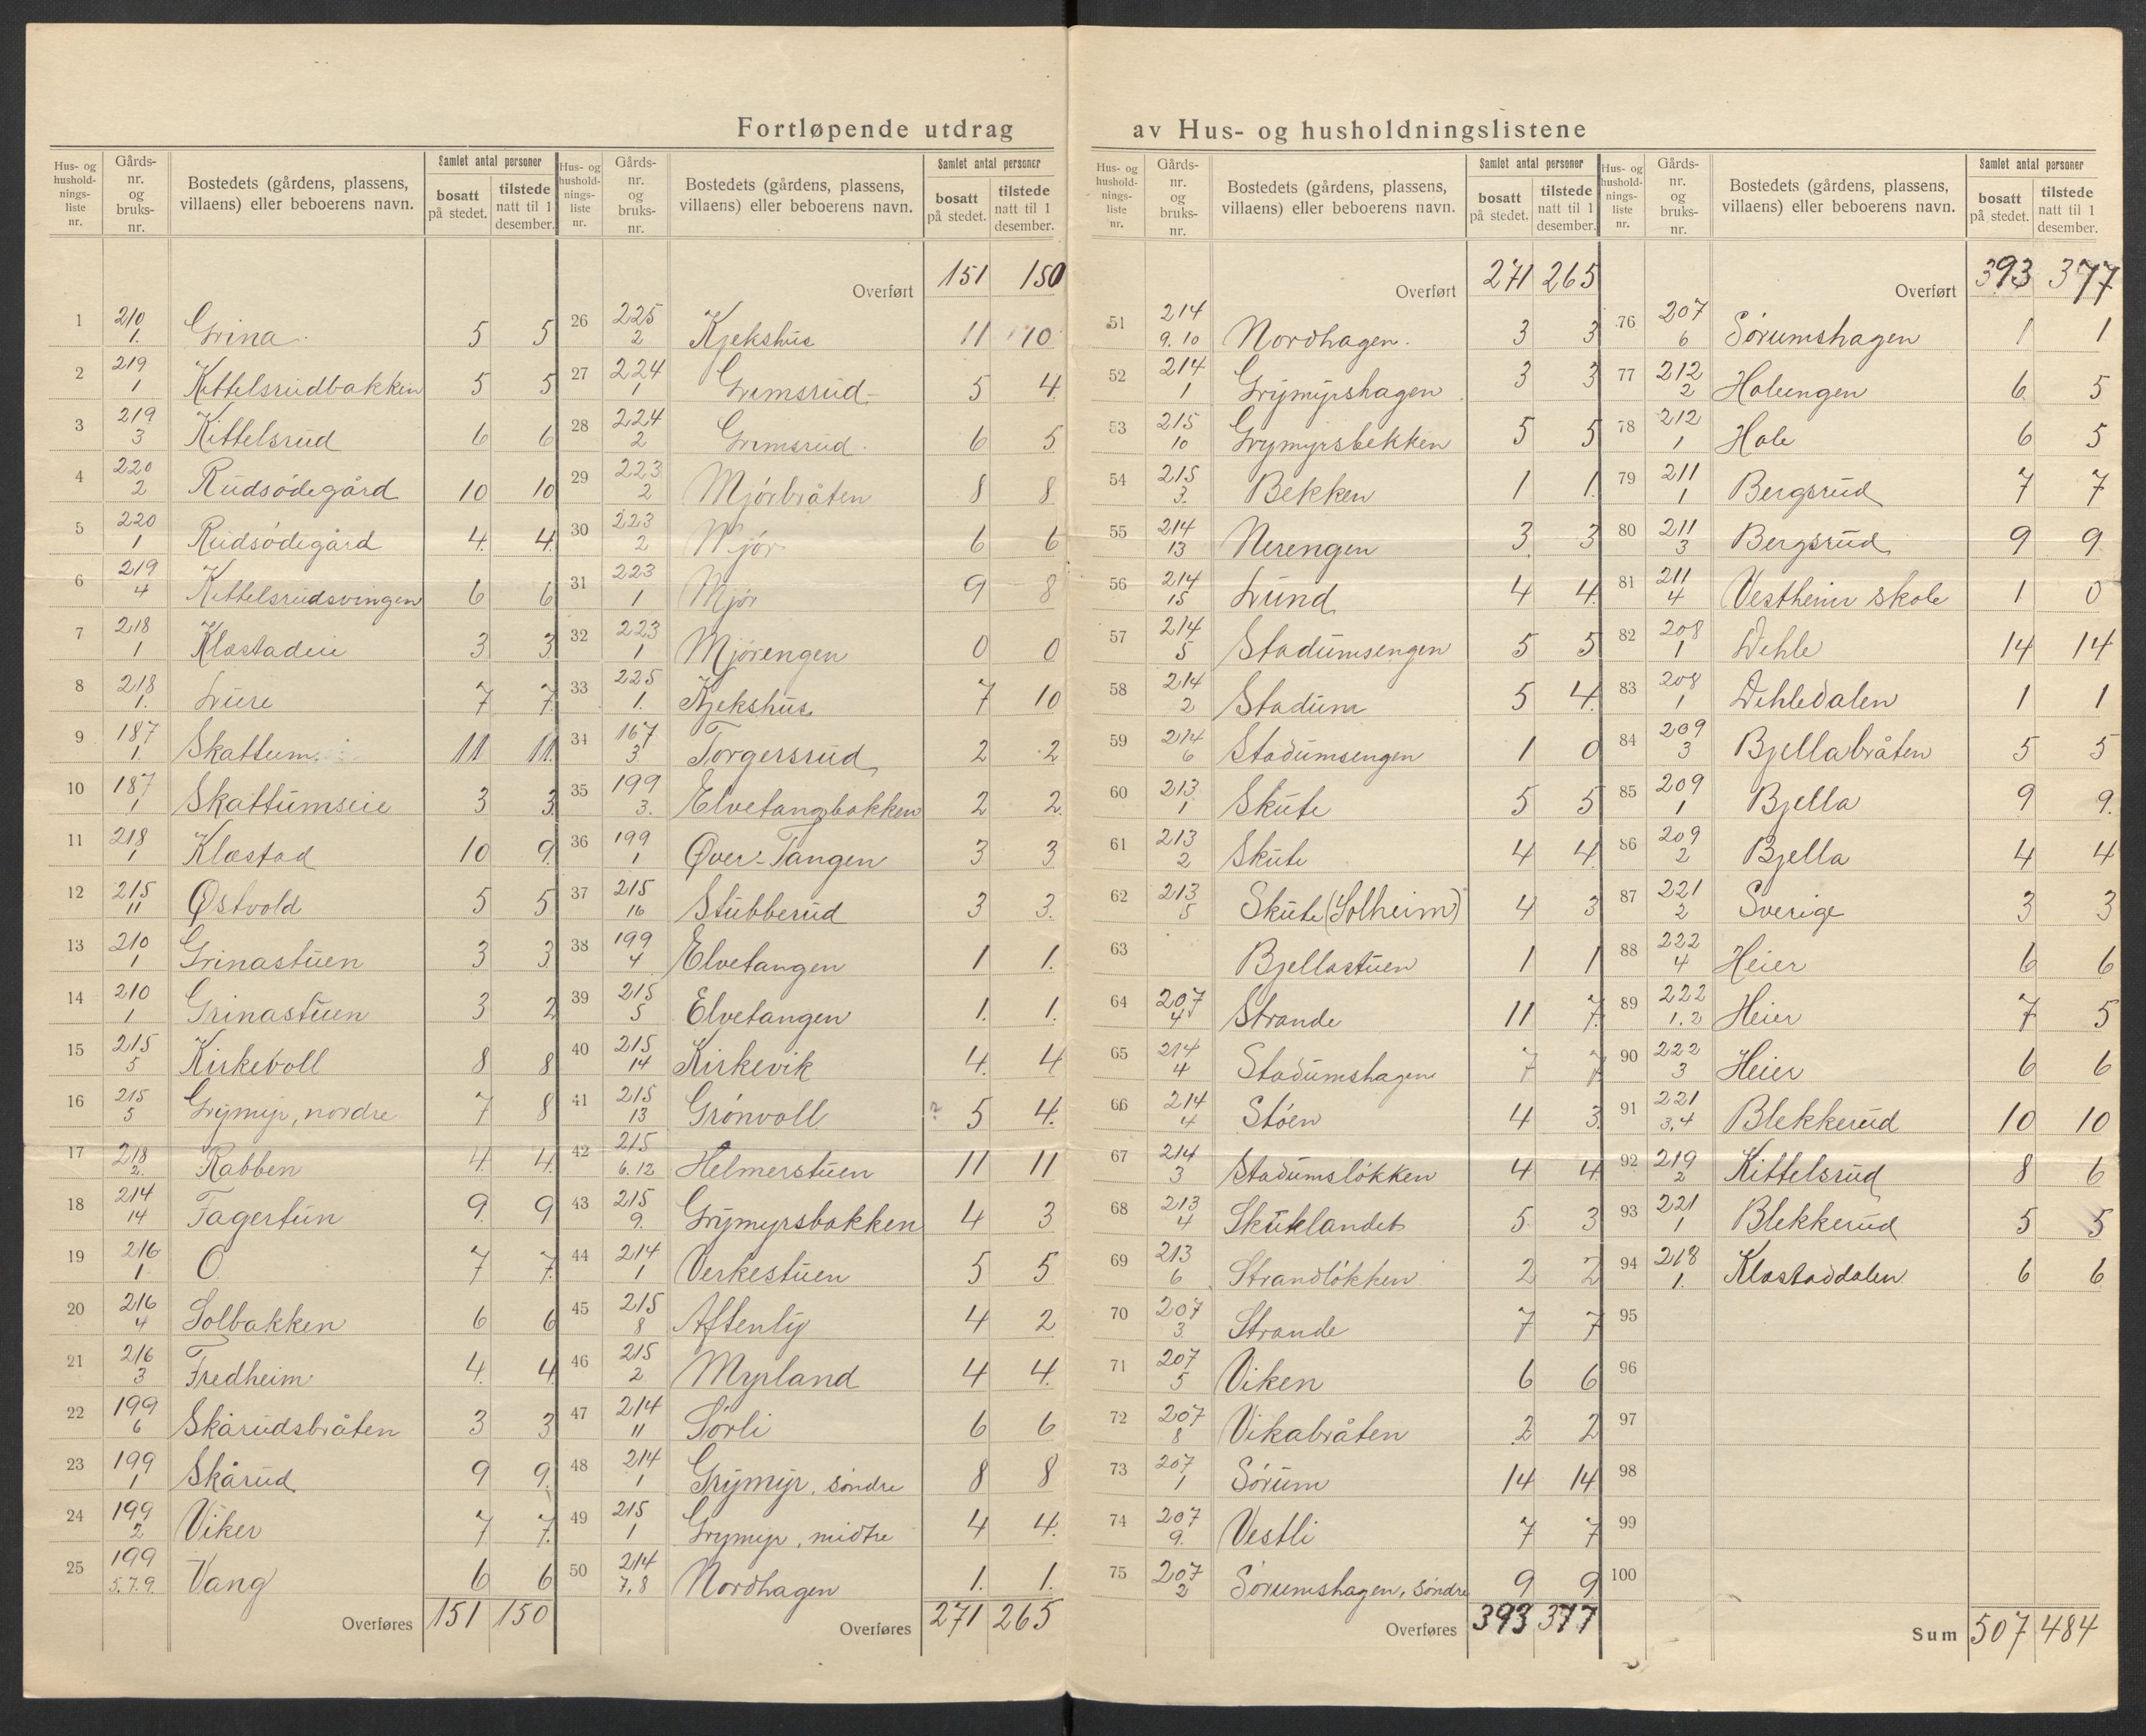 Fortløpende utdrag av Hus- og husholdningslistene
Hus- og husholdnings-liste nr. | Gårds-nr. og bruks-nr. | Bostedets (gårdens, plassens, villaens) eller beboerens navn. | Samlet antal personer bosatt på stedet. | tilstede natt til 1 desember.
1 210/1. Grina 5 5
2 219/1 Kittelsrudbakken 5 5
3 219/3 Kittelsrud 6 6
4 220/2 Rudsødegård 10 10
5 220/1 Rudsødegård 4. 4
6 219/4 Kittelsrudsvingen 6 6
7 218/1 Klæstadeie 3 3
8 218/1. Lure 7 7
9 187/1. Skattum 11 11.
10 187/1 Skattumseie 3 3
11 218/1 Klæstad 10 9
12 215/11 Østvold 5 5
13 210/1 Grinastuen 3 3
14 210/1 Grinastuen 3 2
15 215/5 Kirkevoll 8 8
16 215/5 Grymyr, nordre 7 8
17 218/2. Rabben 4. 4.
18 214/14 Fagertun 9. 9
19 216/1. O 7 7
20 216/4 Solbakken 6 6
21 216/3 Fredheim 4. 4
22 199/6 Skårudsbråten 3 3
23 199/1 Skårud 9 9.
24 199/2 Viker 7 7.
25 199/5.7.9. Vang 6 6
Overføres 151 150
Hus- og husholdnings-liste nr. | Gårds-nr. og bruks-nr. | Bostedets (gårdens, plassens, villaens) eller beboerens navn. | Samlet antal personer bosatt på stedet. | tilstede natt til 1 desember.
Overført 151 150
26 225/2 Kjekshus 11 10
27 224/1 Grimsrud 5 4
28 224/2 Grimsrud 6 5
29 223/2 Mjørbråten 8 8
30 223/2 Mjør 6 6
31 223/1 Mjør 9 8
32 223/1 Mjørengen 0 0
33 225/1. Kjekshus 7 10
34 167/3. Torgersrud 2 2
35 199/3. Elvetangbakken 2 2.
36 199/1 Øver-Tangen 3 3
37 215/16 Stubberud 3 3.
38 199/4 Elvetangen 1 1.
39 215/5 Elvetangen 1. 1.
40 215/14 Kirkevik 4. 4
41 215/13 Grønvoll ? 5 4.
42 215/6.12 Helmerstuen 11 11
43 215/9. Grymyrsbakken 4 3
44 214/1 Verkestuen 5 5
45 215/8 Aftenly 4 2
46 215/2 Myrland 4 4.
47 214/11 Sørli 6 6
48 214/1 Grymyr, søndre 8 8
49 215/1 Grymyr, midtre 4 4.
50 214/7,8 Nordhagen 1. 1.
Overføres 271 265
Hus- og husholdnings-liste nr. | Gårds-nr. og bruks-nr. | Bostedets (gårdens, plassens, villaens) eller beboerens navn. | Samlet antal personer bosatt på stedet. | tilstede natt til 1 desember.
Overført 271 265
51 214/9.10 Nordhagen. 3 3
52 214/1 Grymyrshagen 3 3
53 215/10 Grymyrsbekken 5 5
54 215/3. Bekken 1 1.
55 214/13 Nerengen 3. 3
56 214/15 Lund 4 4.
57 214/5 Stadumsengen 5 5
58 214/2 Stadum 5 4.
59 214/6 Stadumsengen 1 0
60 213/1 Skute 5 5
61 213/2 Skute 4 4.
62 213/5 Skute (Solheim) 4 3
63 Bjellastuen 1 1
64 207/4 Strande 11 7.
65 214/4 Stadumshagen 7 7
66 214/4 Støen 4 3
67 214/3 Stadumsløkken 4 4
68 213/4 Skutelandet 5 3
69 213/6 Strandløkken 2 2
70 207/3. Strande 7 7
71 207/5 Viken 6 6
72 207/8 Vikabråten 2 2
73 207/1 Sørum 14 14
74 207/9. Vestli 7 7
75 207/2 Sørumshagen, søndre 9 9
Overføres 393 377
Hus- og husholdnings-liste nr. | Gårds-nr. og bruks-nr. | Bostedets (gårdens, plassens, villaens) eller beboerens navn. | Samlet antal personer bosatt på stedet. | tilstede natt til 1 desember.
Overført 393 377
76 207/6 Sørumshagen 1 1
77 212/2 Holengen 6 5
78 212/1 Hole 6 5
79 211/1 Bergsrud 7 7
80 211/3 Bergsrud 9 9.
81 211/4 Vestheim skole 1 0
82 208/1 Dehle 14 14
83 208/1 Dehledalen 1 1
84 209/3 Bjellabråten 5 5
85 209/1 Bjella 9 9.
86 209/2 Bjella 4 4
87 221/2 Sverige 3 3
88 222/4 Heier 6 6
89 222/1.2 Heier 7 5
90 222/3 Heier 6 6
91 221/3,4 Blekkerud 10 10
92 219/2 Kittelsrud 8 6
93 221/1 Blekkerud 5 5
94 218/1. Klæstaddalen 6 6
95
96
97
98
99
100
Sum 507 484